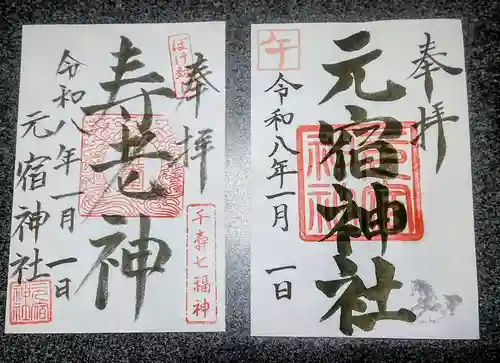 奉拝
はけ封じ
寿老神
令和八年一月一日
元宿神社
千寿七福神
元宿神社
奉拝
元宿神社
午
令和八年一月一日